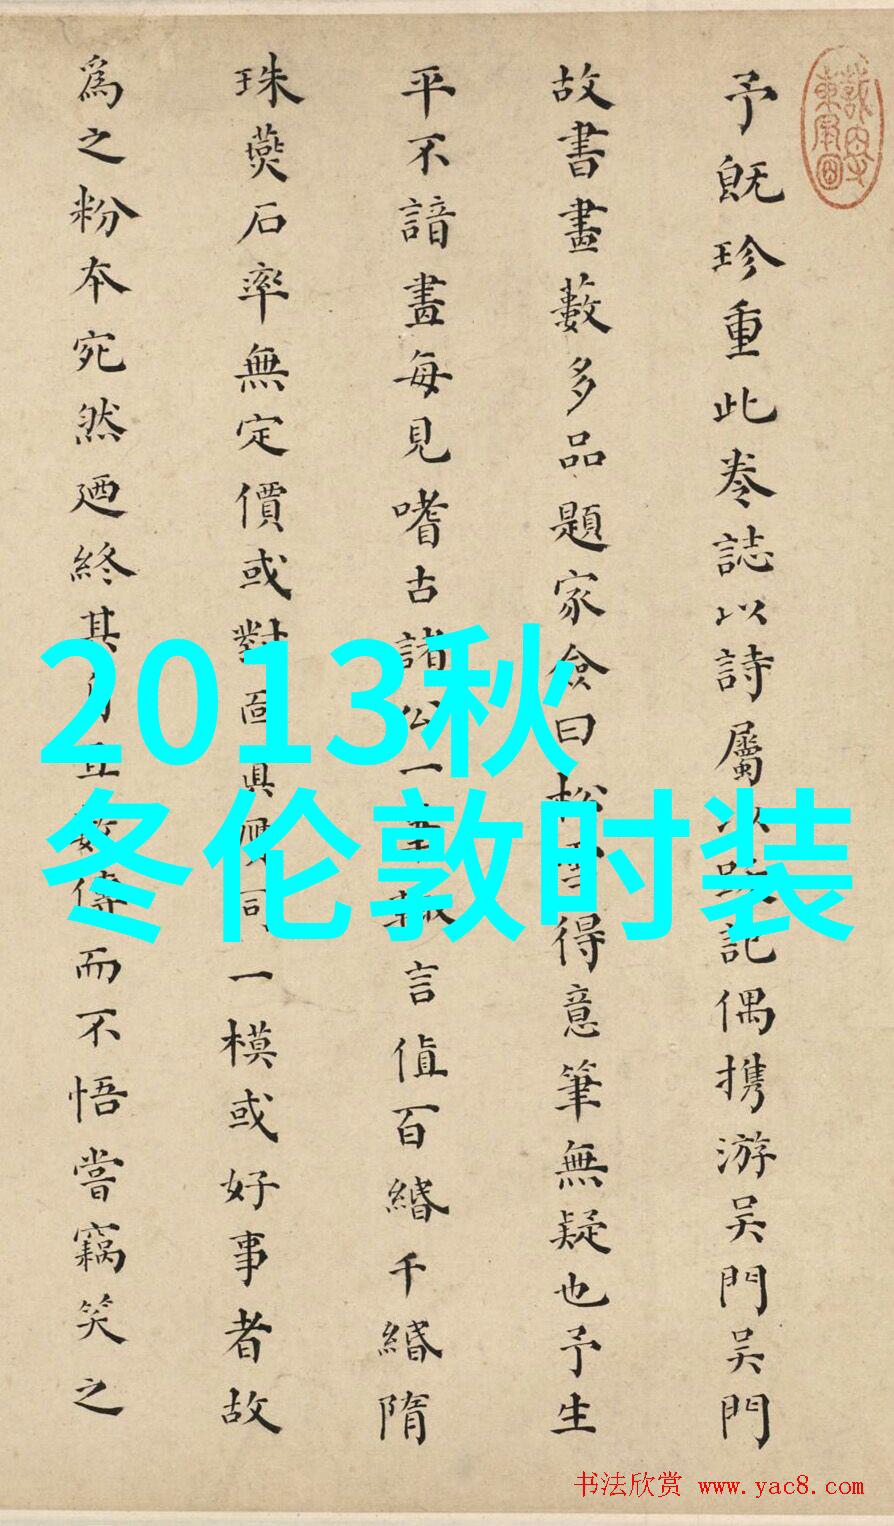 予既珍重此卷誌以詩屬以記偶携游吴門吴門
故書畫藪多品題家僉曰松得意筆無疑也予生
平不諳畫每見嗜古諸公一言值百緡千緡隋
珠燕石率無定價或對同一模或好事者故
為之粉本宛然迺終其傳而不悟嘗竊笑之
2013秋
冬伦敦时装
书法欣赏 www.yac8.com